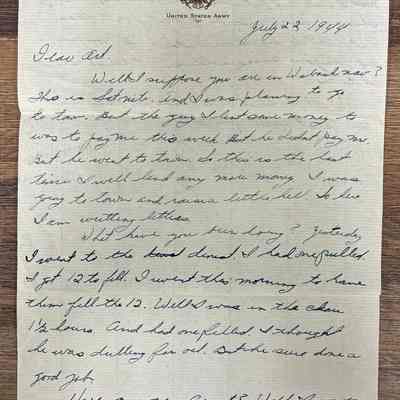 UNITED STATES ARMY
July 22 1944
Dear Art.
Well I suppose you are in Wabash now?
This is Sat nite. And I was planing to go
to town. But the guy I lent some money to
was to pay me this week But he didnt pay me.
But he went to town. So this is the last
time I will lend any more money. I was
going to town and raise a little hell. So here
I am writting letters.
What have you been doing? Yesterday
I went to the dentist. I had one pulled.
I got 12 to fill. I went this morning to have
them fill the 12. Well I was in the chair
1½ hours. And had one filled. I thought
he was drilling for oil. But he sure done a
good job.